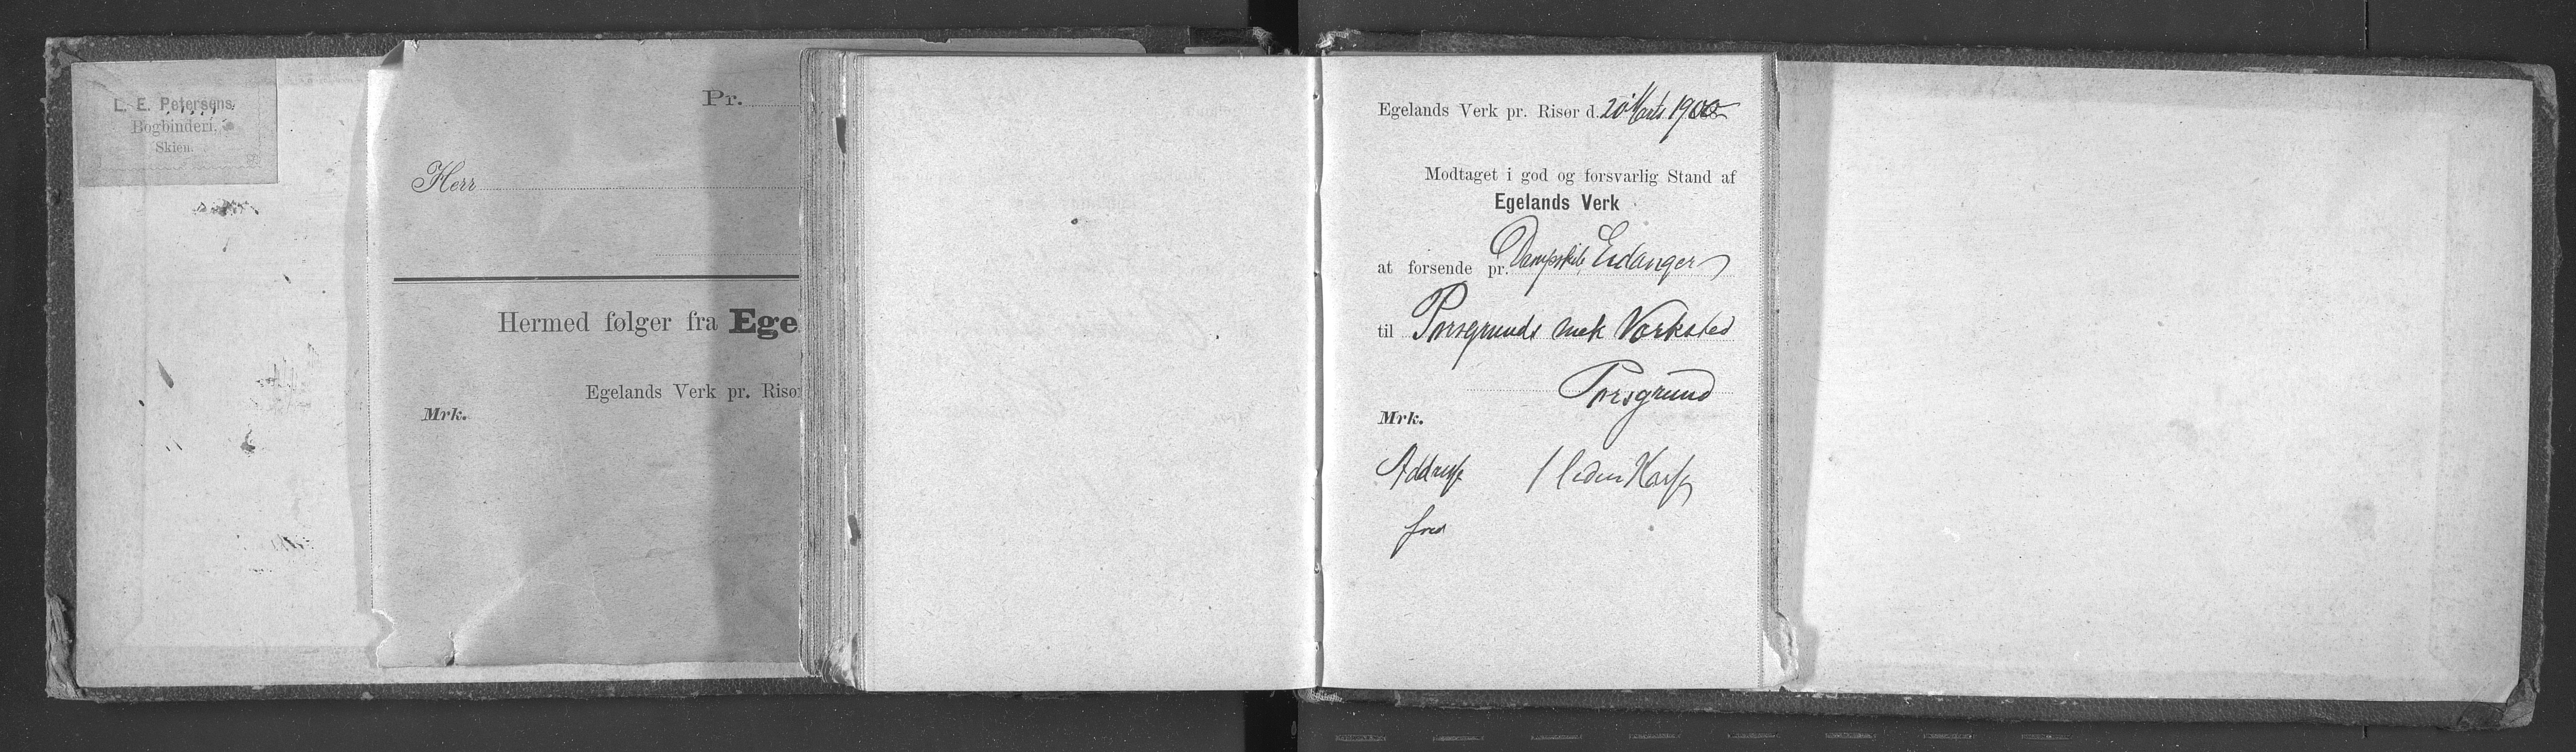 L. E. Petersens
Bogbinderi,
Skien.
Pr.
Herr
Hermed følger fra Ege
Egelands Verk pr. Risør
Mrk.
Egelands Verk pr. Risør d. 20 Marts 1900
Modtaget i god og forsvarlig Stand af
Egelands Verk
at forsende pr. Dampskib Eidanger
til Porsgrunds mek Værksted
Porsgrund
Mrk.
Addresse 1 liden Kasse